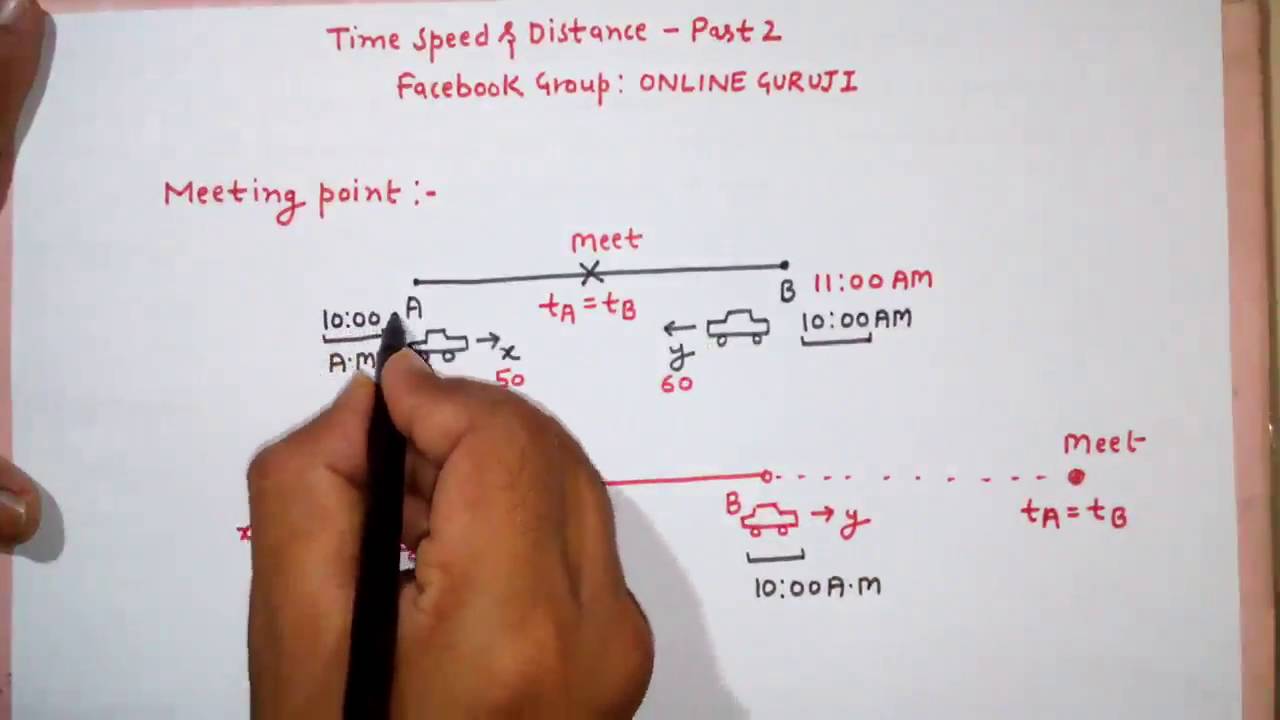 Time Speed & Distance - Part 2
Facebook Group: ONLINE GURUJI
Meeting point :-
meet
A
tA = tB
B 11:00 AM
10:00
A.M
x
50
y
60
10:00 AM
Meet
x
B
y
tA = tB
10:00 A.M